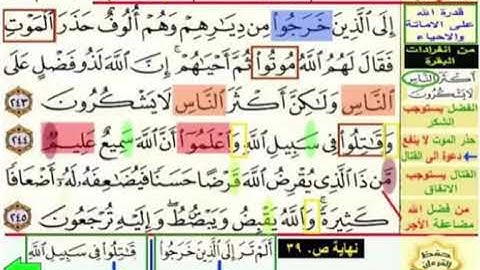 إِلَى ٱلَّذِينَ خَرَجُوا۟ مِن دِيَٰرِهِمْ وَهُمْ أُلُوفٌ حَذَرَ ٱلْمَوْتِ
فَقَالَ لَهُمُ ٱللَّهُ مُوتُوا۟ ثُمَّ أَحْيَٰهُمْ ۚ إِنَّ ٱللَّهَ لَذُو فَضْلٍ عَلَى
ٱلنَّاسِ وَلَٰكِنَّ أَكْثَرَ ٱلنَّاسِ لَا يَشْكُرُونَ ٢٤٣
وَقَٰتِلُوا۟ فِى سَبِيلِ ٱللَّهِ وَٱعْلَمُوٓا۟ أَنَّ ٱللَّهَ سَمِيعٌ عَلِيمٌ ٢٤٤
مَّن ذَا ٱلَّذِى يُقْرِضُ ٱللَّهَ قَرْضًا حَسَنًا فَيُضَٰعِفَهُۥ لَهُۥٓ أَضْعَافًا
كَثِيرَةً ۚ وَٱللَّهُ يَقْبِضُ وَيَبْصُۜطُ وَإِلَيْهِ تُرْجَعُونَ ٢٤٥
قدرة الله
على الاماتة
والاحياء
من انفرادات
البقرة
أَكْثَرَ ٱلنَّاسِ
لَا يَشْكُرُونَ
الفضل يستوجب
الشكر
حذر الموت لا ينفع
دعوة الى القتال
القتال يستوجب
الانفاق
من فضل الله
مضاعفة الأجر
نهاية ص. ٣٩
أَلَمْ تَرَ إِلَى ٱلَّذِينَ خَرَجُوا۟
وَقَٰتِلُوا۟ فِى سَبِيلِ ٱللَّهِ
حفظ
القرءان